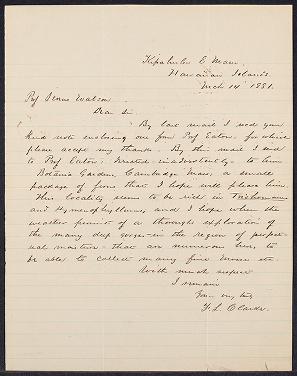 Kipahulu E. Maui,
Hawaiian Islands
Mch 14 1881.
Prof Watson
Dear Sir
By last mail I recd your
kind note enclosing one from Prof Eaton: for which
please accept my thanks. By this mail I send
to Prof Eaton: directed inadvertently to him
Botanic Garden, Cambridge Mass, a small
package of ferns that I hope will please him.
This locality seems to be rich in Trichomanes
and Hymenophyllums, and I hope when the
weather permits of a thorough exploration of
the many deep gorges in the region of perpet-
ual moisture that are numerous here, to
be able to collect many fine mosses etc.
With much respect
I remain
Yours very truly